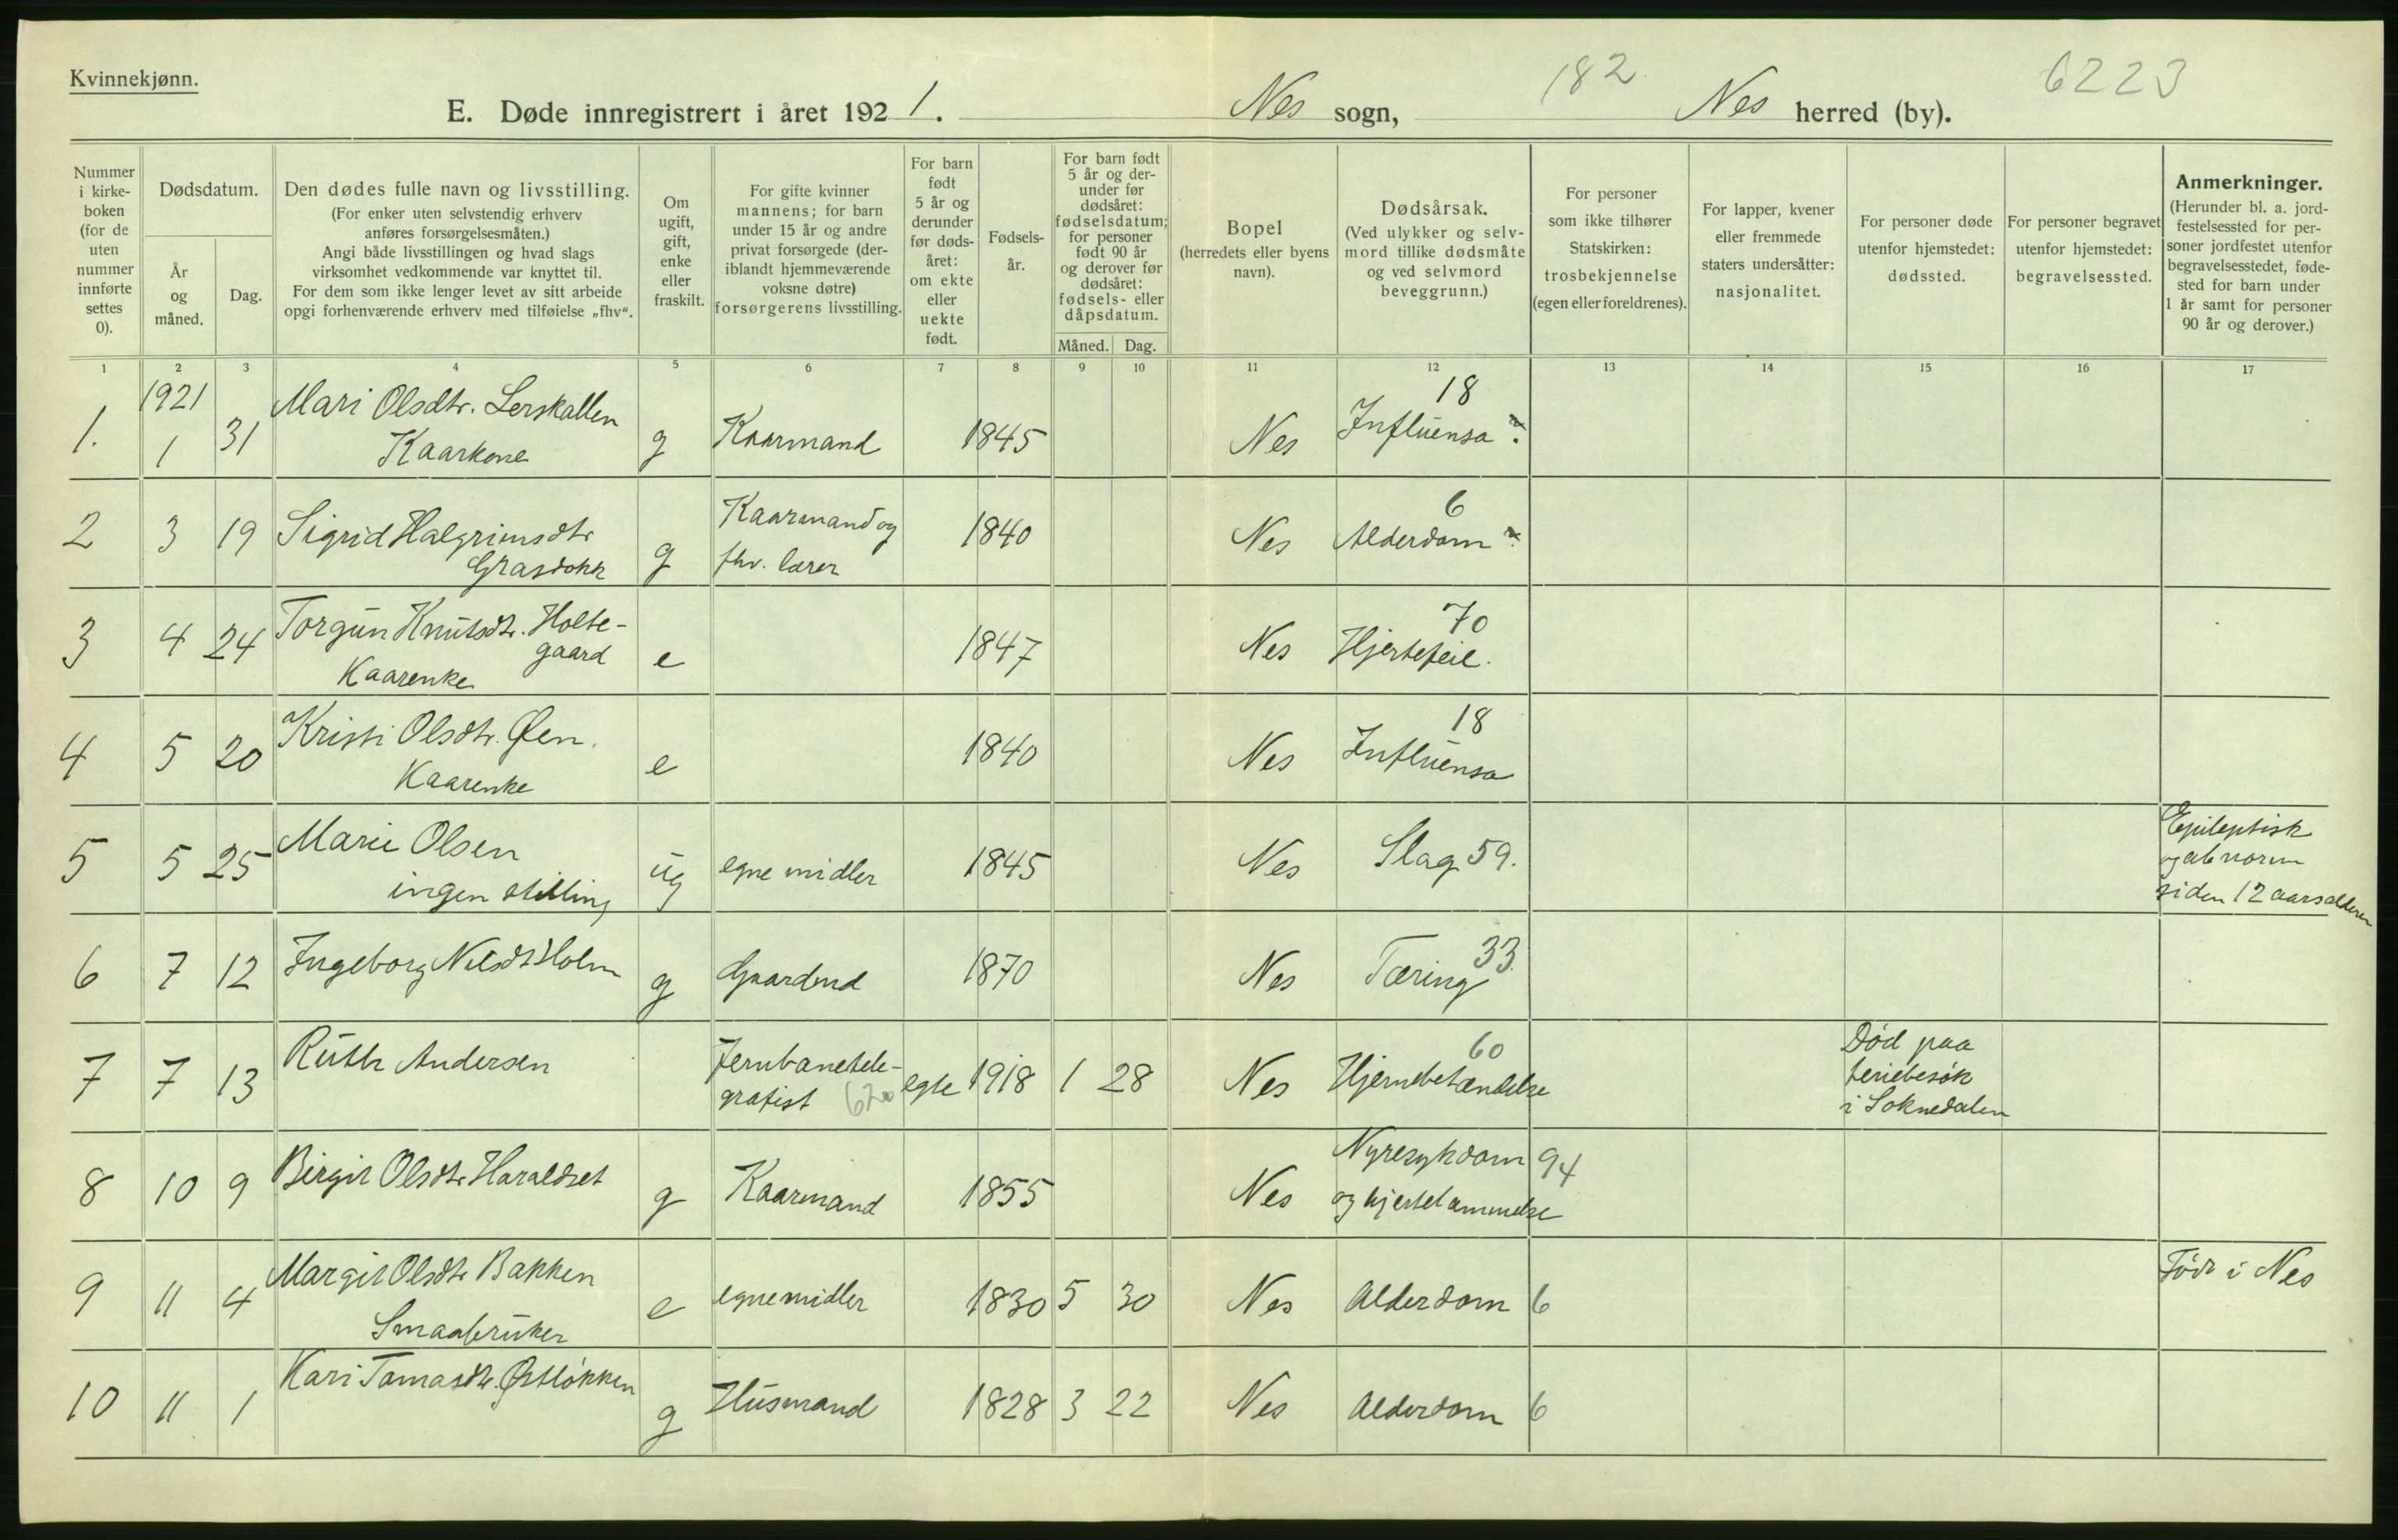 Kvinnekjønn.
E. Døde innregistrert i året 1921. Nes sogn, 182 Nes herred (by). 6223
Nummer i kirke- boken (for de uten nummer innførte settes 0).
Dødsdatum.
År og måned.
Dag.
Den dødes fulle navn og livsstilling.
(For enker uten selvstendig erhverv
anføres forsørgelsesmåten.)
Angi både livsstillingen og hvad slags
virksomhet vedkommende var knyttet til.
For dem som ikke lenger levet av sitt arbeide
opgi forhenværende erhverv med tilføielse „fhv“.
Om ugift, gift, enke eller fraskilt.
For gifte kvinner
mannens; for barn
under 15 år og andre
privat forsørgede (der-
iblandt hjemmeværende
voksne døtre)
forsørgerens livsstilling.
For barn født 5 år og derunder før døds- året: om ekte eller uekte født.
Fødsels- år.
For barn født
5 år og der-
under før
dødsåret:
fødselsdatum;
for personer
født 90 år
og derover før
dødsåret:
fødsels- eller
dåpsdatum.
Måned. Dag.
Bopel
(herredets eller byens
navn).
Dødsårsak.
(Ved ulykker og selv-
mord tillike dødsmåte
og ved selvmord
beveggrunn.)
For personer
som ikke tilhører
Statskirken:
trosbekjennelse
(egen eller foreldrenes).
For lapper, kvener
eller fremmede
staters undersåtter:
nasjonalitet.
For personer døde
utenfor hjemstedet:
dødssted.
For personer begravet
utenfor hjemstedet:
begravelsessted.
Anmerkninger.
(Herunder bl. a. jord-
festelsessted for per-
soner jordfestet utenfor
begravelsesstedet, føde-
sted for barn under
1 år samt for personer
90 år og derover.)
1 2 3 4 5 6 7 8 9 10 11 12 13 14 15 16 17
1921 Mari Olsdtr. Lerskallen 18
1. 1 31 Kaarkone g Kaarmand 1845 Nes Influensa ?
2 3 19 Sigrid Halgrimsdtr Kaarmand og 1840 Nes Alderdom ? 6
Grasdokk g fhv. lærer
3 4 24 Torgun Knutsdtr. Holte- 70
gaard e 1847 Nes Hjertefeil.
Kaarenke
4 5 20 Kristi Olsdtr. Øen. 18
Kaarenke e 1840 Nes Influensa
5 5 25 Marie Olsen ug egne midler 1845 Nes Slag 59. Epileptisk
ingen stilling og abnorm
siden 12 aarsalderen
6 7 12 Ingeborg Nilsdt Holm g Gaardmd 1870 Nes Tæring 33.
7 7 13 Ruth Andersen Jernbanetele- egte 1918 1 28 Nes Hjernebetændelse 60 Død paa
grafist 620 feriebesøk
i Soknedalen
8 10 9 Birgit Olsdtr Haraldset g Kaarmand 1855 Nes Nyresykdom 94
og hjertelammelse
9 11 4 Margit Olsdtr Bakken e egne midler 1830 5 30 Nes Alderdom 6 Född i Nes
Smaabruker
10 11 1 Kari Tomasdtr. Østløkken g Husmand 1828 3 22 Nes Alderdom 6